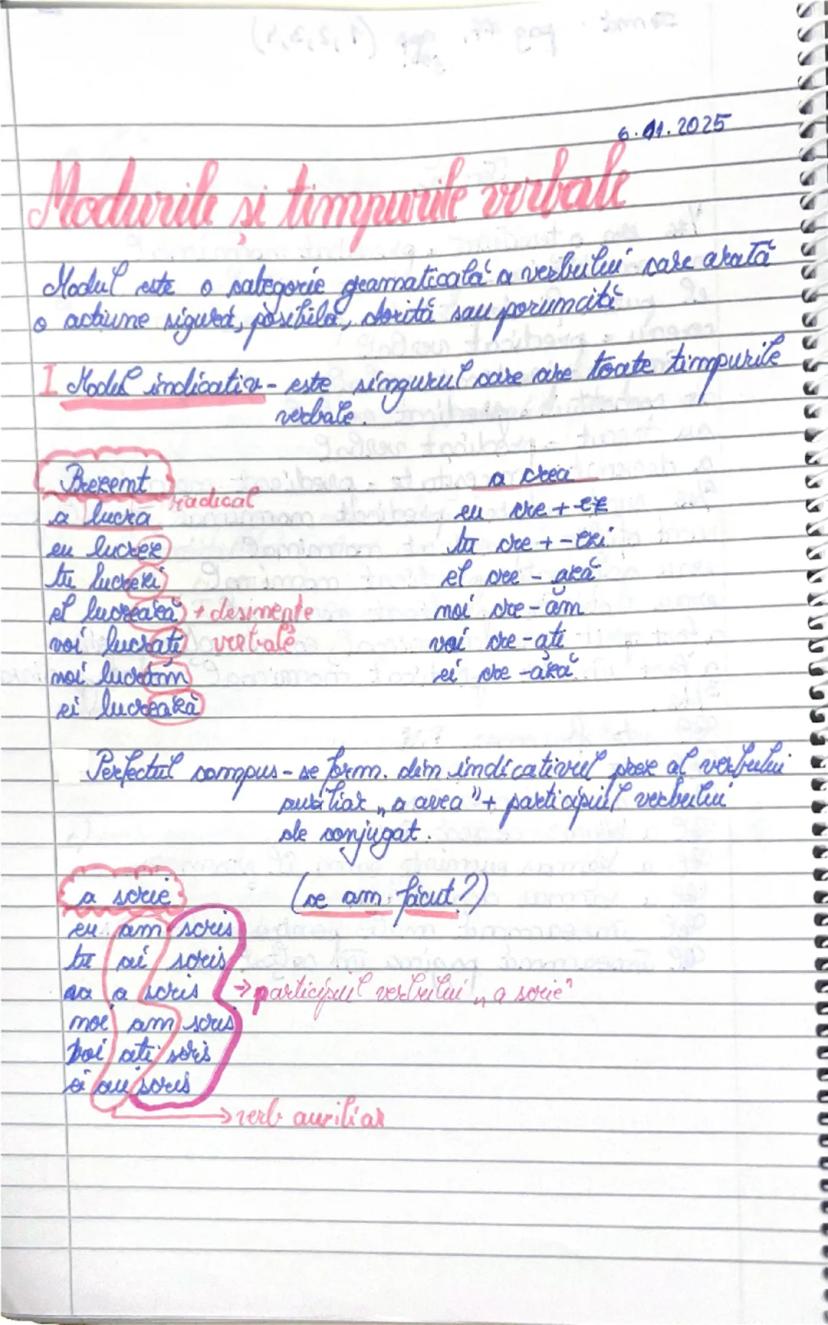 6.11.2025
Modurile și timpurile verbale
Modul este o categorie gramaticală a verbului care arată
o acțiune sigură, posibilă, dorită sau poruncită
I Modul indicativ - este singurul care are toate timpurile
verbale.
Prezent
radical
a lucra
eu lucrez
tu lucrezi
el lucrează + desinențe
voi lucrați verbale
noi lucrăm
ei lucrează
a crea
eu cre + -ez
tu cre + -ezi
el cre - ază
noi cre - ăm
voi cre - ați
ei cre - ază
Perfectul compus - se form. din indicativul prez al verbului
auxiliar „a avea" + participiul verbului
de conjugat.
a scrie (ce am făcut?)
eu am scris
tu ai scris
ea a scris → participiul verbului „a scrie"
noi am scris
voi ați scris
ei au scris
→ verb auxiliar